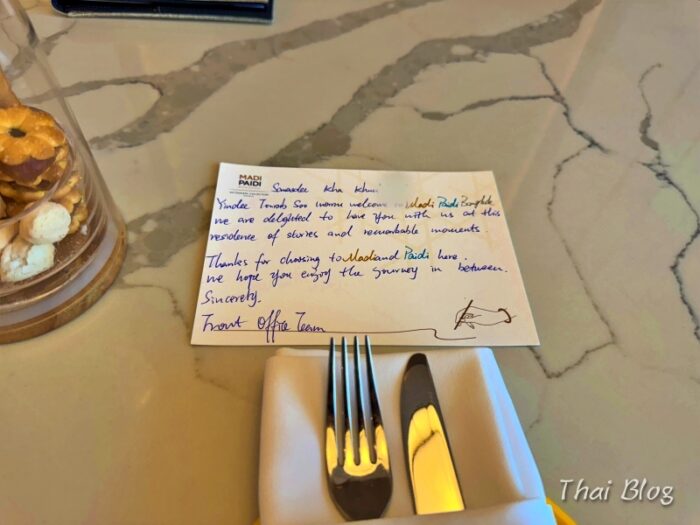 MADI
PAIDI
Sawasdee Kha Khun
Yindee Tonrab Soo warm welcome to Madi Paidi Bangkok
we are delighted to have you with us at this
residence of stories and remarkable moments.
Thanks for choosing to Madi and Paidi here.
we hope you enjoy the journey in between.
Sincerely.
Front Office Team
Thai Blog